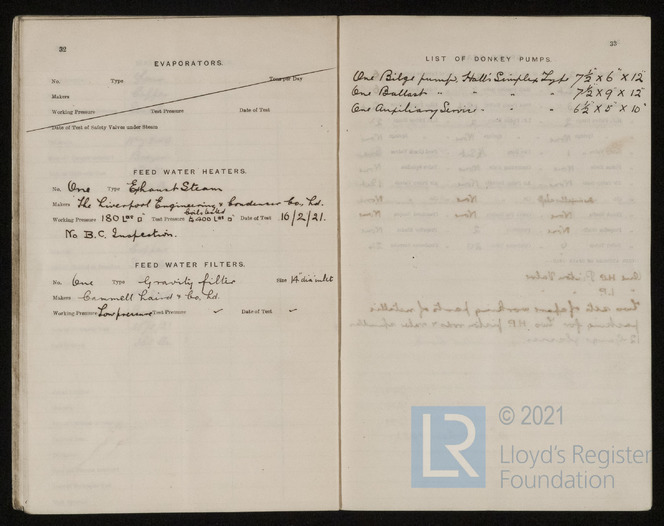 32
EVAPORATORS.
No. Type Tons per Day
Makers
Working Pressure Test Pressure Date of Test
Date of Test of Safety Valves under Steam
FEED WATER HEATERS.
No. One Type Exhaust Steam
Makers The Liverpool Engineering & Condenser Co, Ld.
Coils tested
Working Pressure 180 Lbs □" Test Pressure to 400 Lbs □" Date of Test 16/2/21.
No B.C. Inspection.
FEED WATER FILTERS.
No. One Type Gravity filter Size 14" dia inlet
Makers Cammell Laird & Co, Ld.
Working Pressure Low pressure Test Pressure ✓ Date of Test ✓
33
LIST OF DONKEY PUMPS.
One Bilge pump, Hall's Simplex Type 7½" x 6" x 12"
One Ballast " " " 7½ x 9" x 12"
One Auxiliary Service " " " 6½ x 5" x 10"
LR © 2021
Lloyd's Register
Foundation